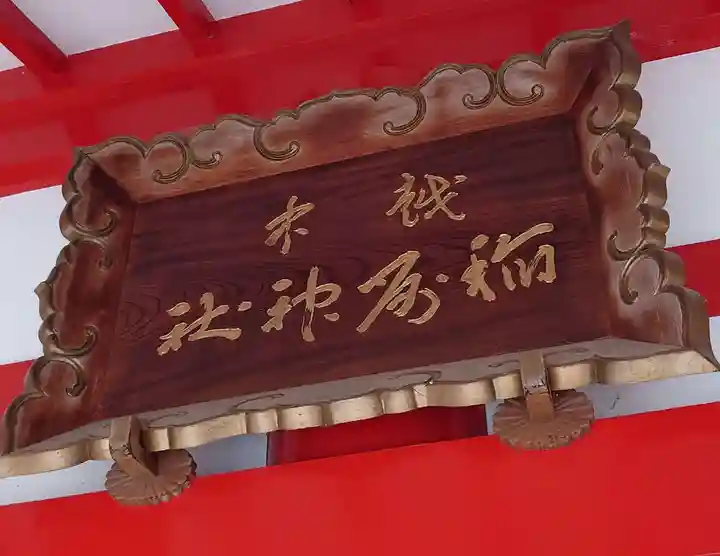 越木
稲荷神社